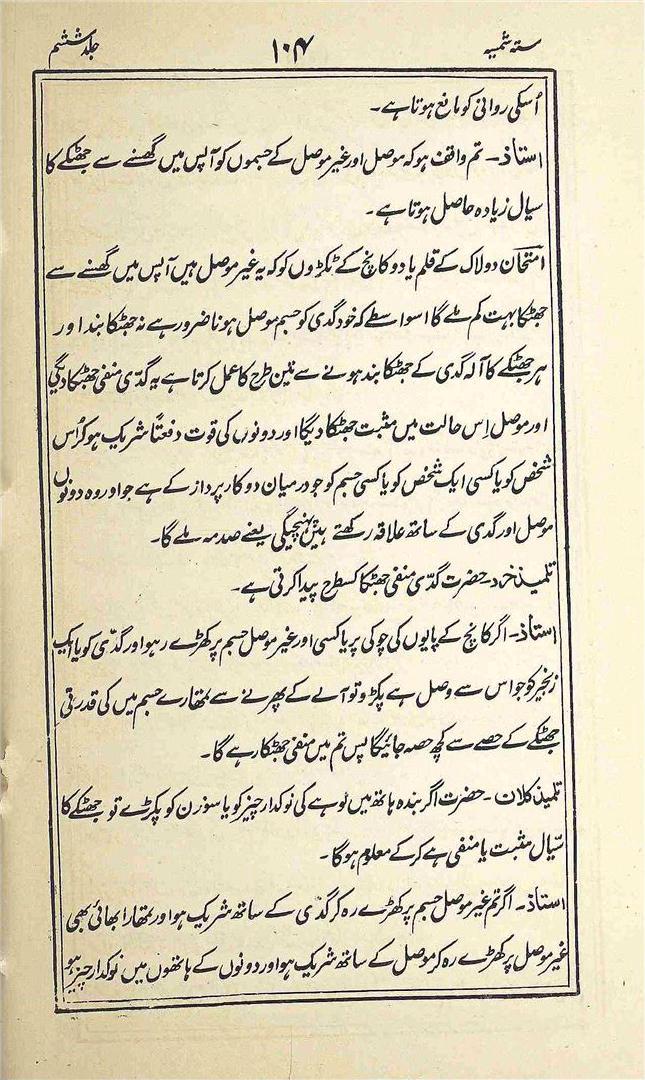 ستہ شمسیہ ۱۰۴ جلد ششم
اُسکی روانی کو مانع ہوتا ہے۔
استاذ۔ تم واقف ہو کہ موصل اور غیر موصل کے جسموں کو آپس میں گھسنے سے جھٹکے کا
سیال زیادہ حاصل ہوتا ہے۔
امتحان دو لاک کے قلم یا دو کانچ کے ٹکڑوں کو کہ یہ غیر موصل ہیں آپس میں گھسنے سے
جھٹکا بہت کم ملے گا اسواسطے کہ خود گدی کو جسم موصل ہونا ضرور ہے نہ جھٹکا بند اور
ہر جھٹکے کا آلہ گدی کے جھٹکا بند ہونے سے تین طرح کا عمل کرتا ہے یہ گدّی منفی جھٹکا دیگی
اور موصل اِس حالت میں مثبت جھٹکا دیگا اور دونوں کی قوت دفعتًا شریک ہو کر اُس
شخص کو یا کسی ایک شخص کو یا کسی جسم کو جو درمیان دو کار پرداز کے ہے جو اور وہ دونوں
موصل اور گدی کے ساتھ علاقہ رکھتے ہیں پہنچیگی یعنے صدمہ ملے گا۔
تلمیذ خرد۔ حضرت گدّی منفی جھٹکا کسطرح پیدا کرتی ہے۔
استاذ۔ اگر کانچ کے پایوں کی چوکی پر یا کسی اور غیر موصل جسم پر کھڑے رہو اور گدّی کو یا ایک
زنجیر کو جو اس سے وصل ہے پکڑو تو آلے کے پھرنے سے تمھارے جسم میں کی قدرتی
جھٹکے کے حصے سے کچھ حصہ جائیگا پس تم میں منفی جھٹکا رہے گا۔
تلمیذ کلان۔ حضرت اگر بندہ ہاتھ میں لوہے کی نوکدار چیز کو یا سوزن کو پکڑے تو جھٹکے کا
سیّال مثبت یا منفی ہے کر کے معلوم ہوگا۔
استاذ۔ اگر تم غیر موصل جسم پر کھڑے رہ کر گدّی کے ساتھ شریک ہو اور تمھارا بھائی بھی
غیر موصل پر کھڑے رہ کر موصل کے ساتھ شریک ہو اور دونوں کے ہاتھوں میں نوکدار چیز ہو